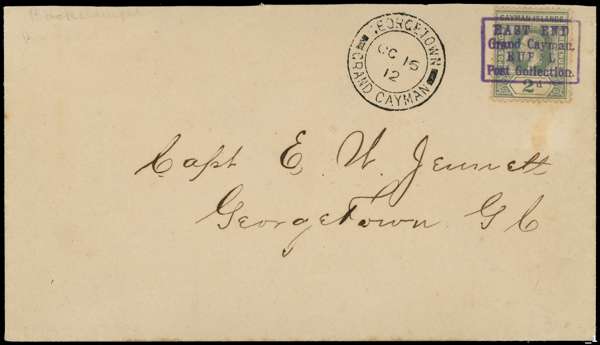 GEORGETOWN
OC 15
12
GRAND CAYMAN
CAYMAN ISLANDS
EAST END
Grand Cayman.
RUF 1.
Post Collection.
2d
Capt E. W. Jennett
GeorgeTown G C